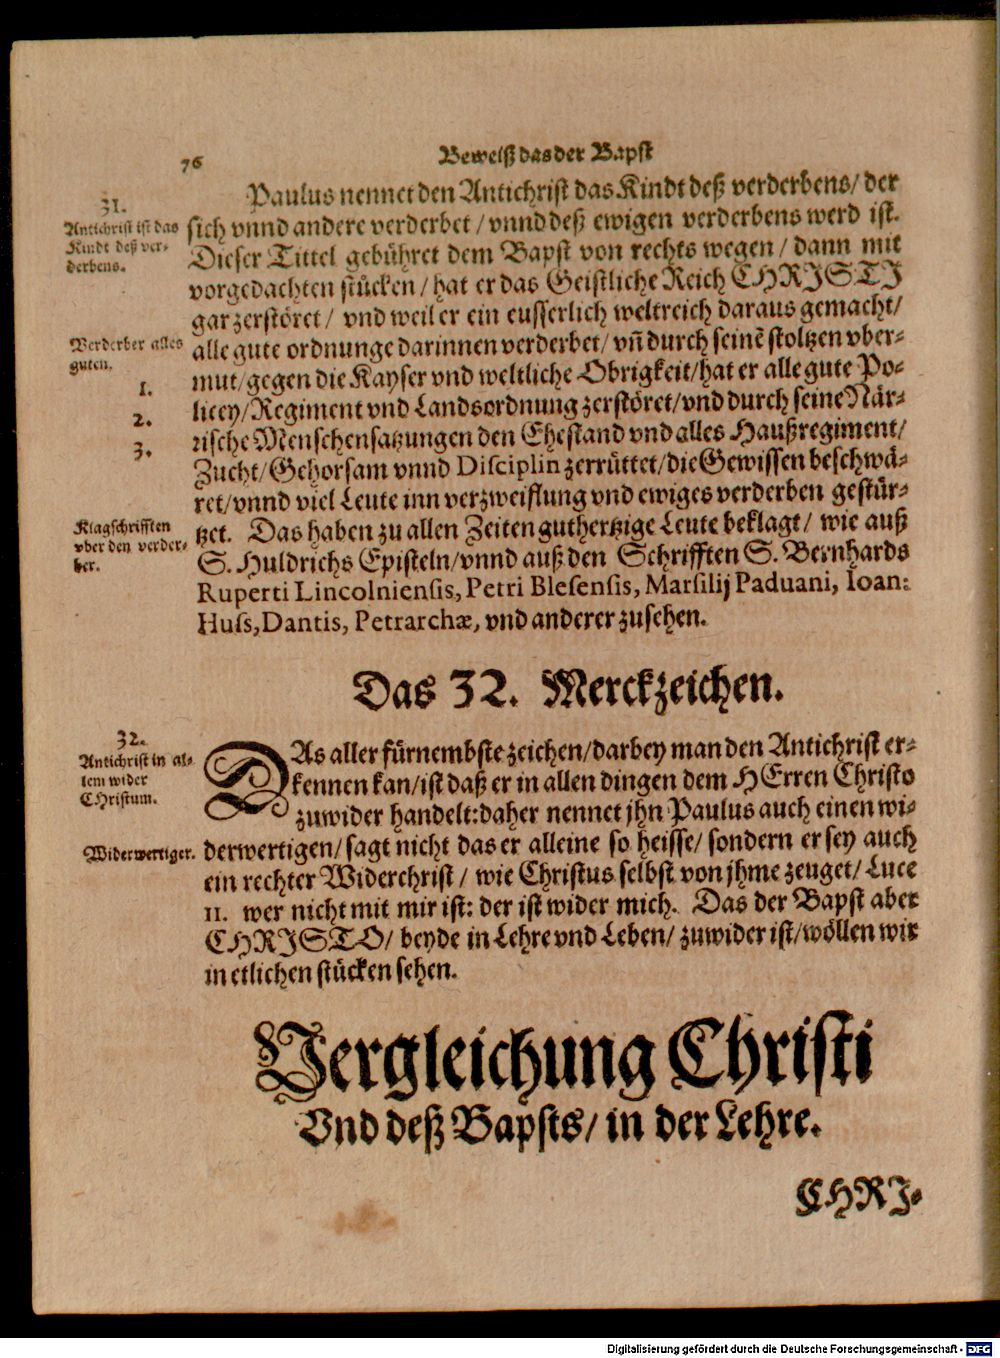 76
Beweiß das der Bapst
31.
Antichrist ist das
Kindt deß ver-
derbens.
Paulus nennet den Antichrist das Kindt deß verderbens/ der
sich vnnd andere verderbet / vnnd deß ewigen verderbens werd ist.
Dieser Tittel gebühret dem Bapst von rechts wegen / dann mit
vorgedachten stücken / hat er das Geistliche Reich CHRISTI
gar zerstöret / vnd weil er ein eusserlich weltreich daraus gemacht/
Verderber alles
guten.
1.
2.
3.
alle gute ordnunge darinnen verderbet/ vñ durch seinẽ stoltzen vber-
mut/ gegen die Kayser vnd weltliche Obrigkeit/ hat er alle gute Po-
licey/ Regiment vnd Landsordnung zerstöret/ vnd durch seine När-
rische Menschensatzungen den Ehestand vnd alles Haußregiment/
Zucht/ Gehorsam vnnd Disciplin zerrüttet/ die Gewissen beschwä-
ret/ vnnd viel Leute inn verzweiflung vnd ewiges verderben gestür-
Klagschrifften
vber den verder-
ber.
tzet. Das haben zu allen Zeiten guthertzige Leute beklagt/ wie auß
S. Huldrichs Episteln/ vnnd auß den Schrifften S. Bernhards
Ruperti Lincolniensis, Petri Blesensis, Marsilij Paduani, Ioan:
Huss, Dantis, Petrarchæ, vnd anderer zusehen.
Das 32. Merckzeichen.
32.
Antichrist in al-
lem wider
CHristum.
DAs aller fürnembste zeichen/ darbey man den Antichrist er-
kennen kan/ ist daß er in allen dingen dem HErren Christo
zuwider handelt: daher nennet jhn Paulus auch einen wi-
Widerwertiger.
derwertigen/ sagt nicht das er alleine so heisse/ sondern er sey auch
ein rechter Widerchrist / wie Christus selbst von jhme zeuget/ Luce
11. wer nicht mit mir ist: der ist wider mich. Das der Bapst aber
CHRISTO/ beyde in Lehre vnd Leben/ zuwider ist/ wöllen wir
in etlichen stücken sehen.
Vergleichung Christi
Vnd deß Bapsts/ in der Lehre.
CHRI-
Digitalisierung gefördert durch die Deutsche Forschungsgemeinschaft - DFG